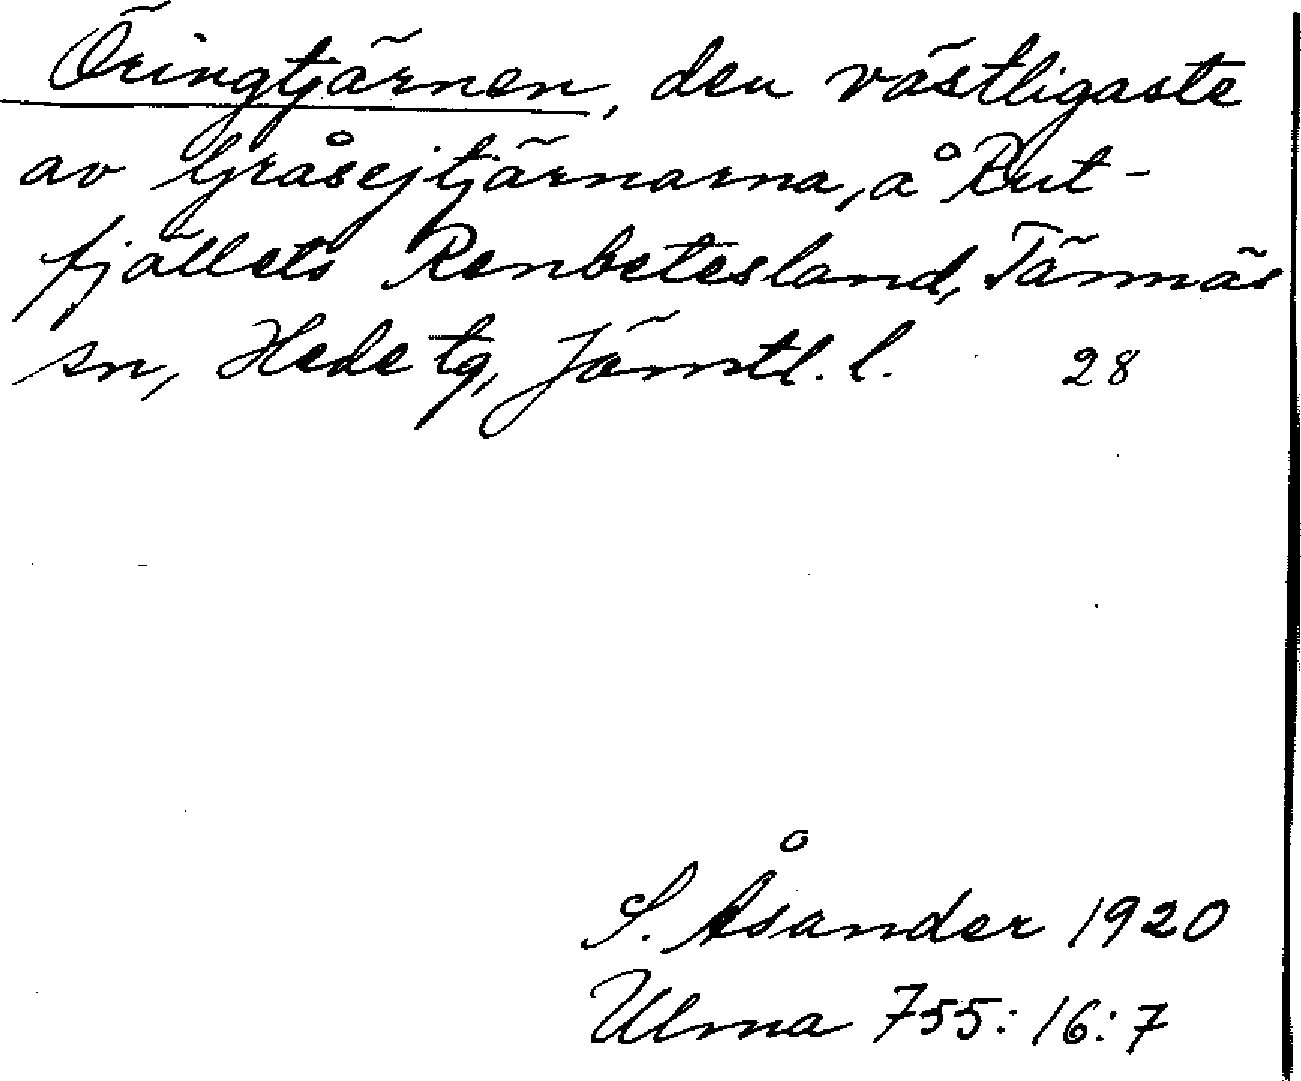 Öringtjärnen, den västligaste
av Gråsejtjärnarna, å Rut-
fjällets Renbetesland, Tännäs
sn, Hede tg, Jämtl. l. 28
S. Åsander 1920
Ulma 755:16:7